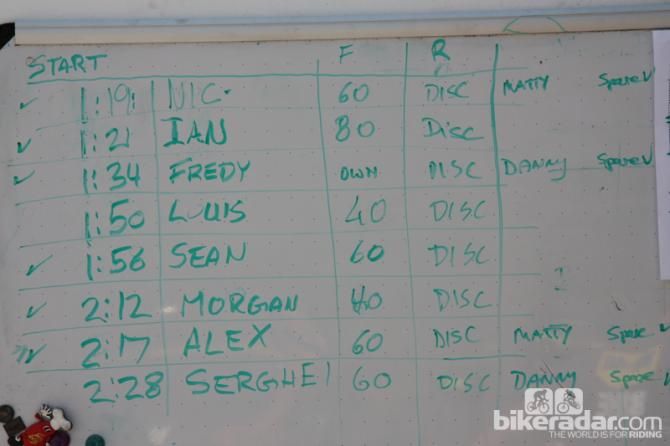 START F R
✓ 1:19 NIC 60 DISC MATTY Spare ✓
✓ 1:21 IAN 80 DISC
✓ 1:34 FREDY OWN DISC DANNY Spare ✓
1:50 LOUIS 40 DISC
✓ 1:56 SEAN 60 DISC
✓ 2:12 MORGAN 40 DISC
✓ 2:17 ALEX 60 DISC MATTY Spare ✓
2:28 SERGHEI 60 DISC DANNY Spare ✓
bikeradar.com
THE WORLD IS FOR RIDING